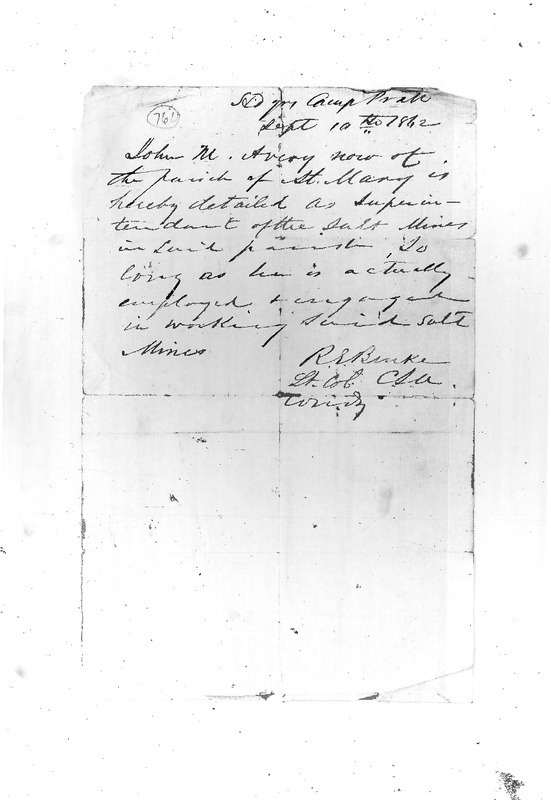 764
Hd qrs Camp Pratt
Sept 10th 1862
John M. Avery now of
the parish of St. Mary is
hereby detailed as Superin-
tendant of the Salt Mines
in Said parish, So
long as he is actually
employed & engaged
in working Said Salt
Mines
R E Burke
Lt. Col. CSA.
Comdg